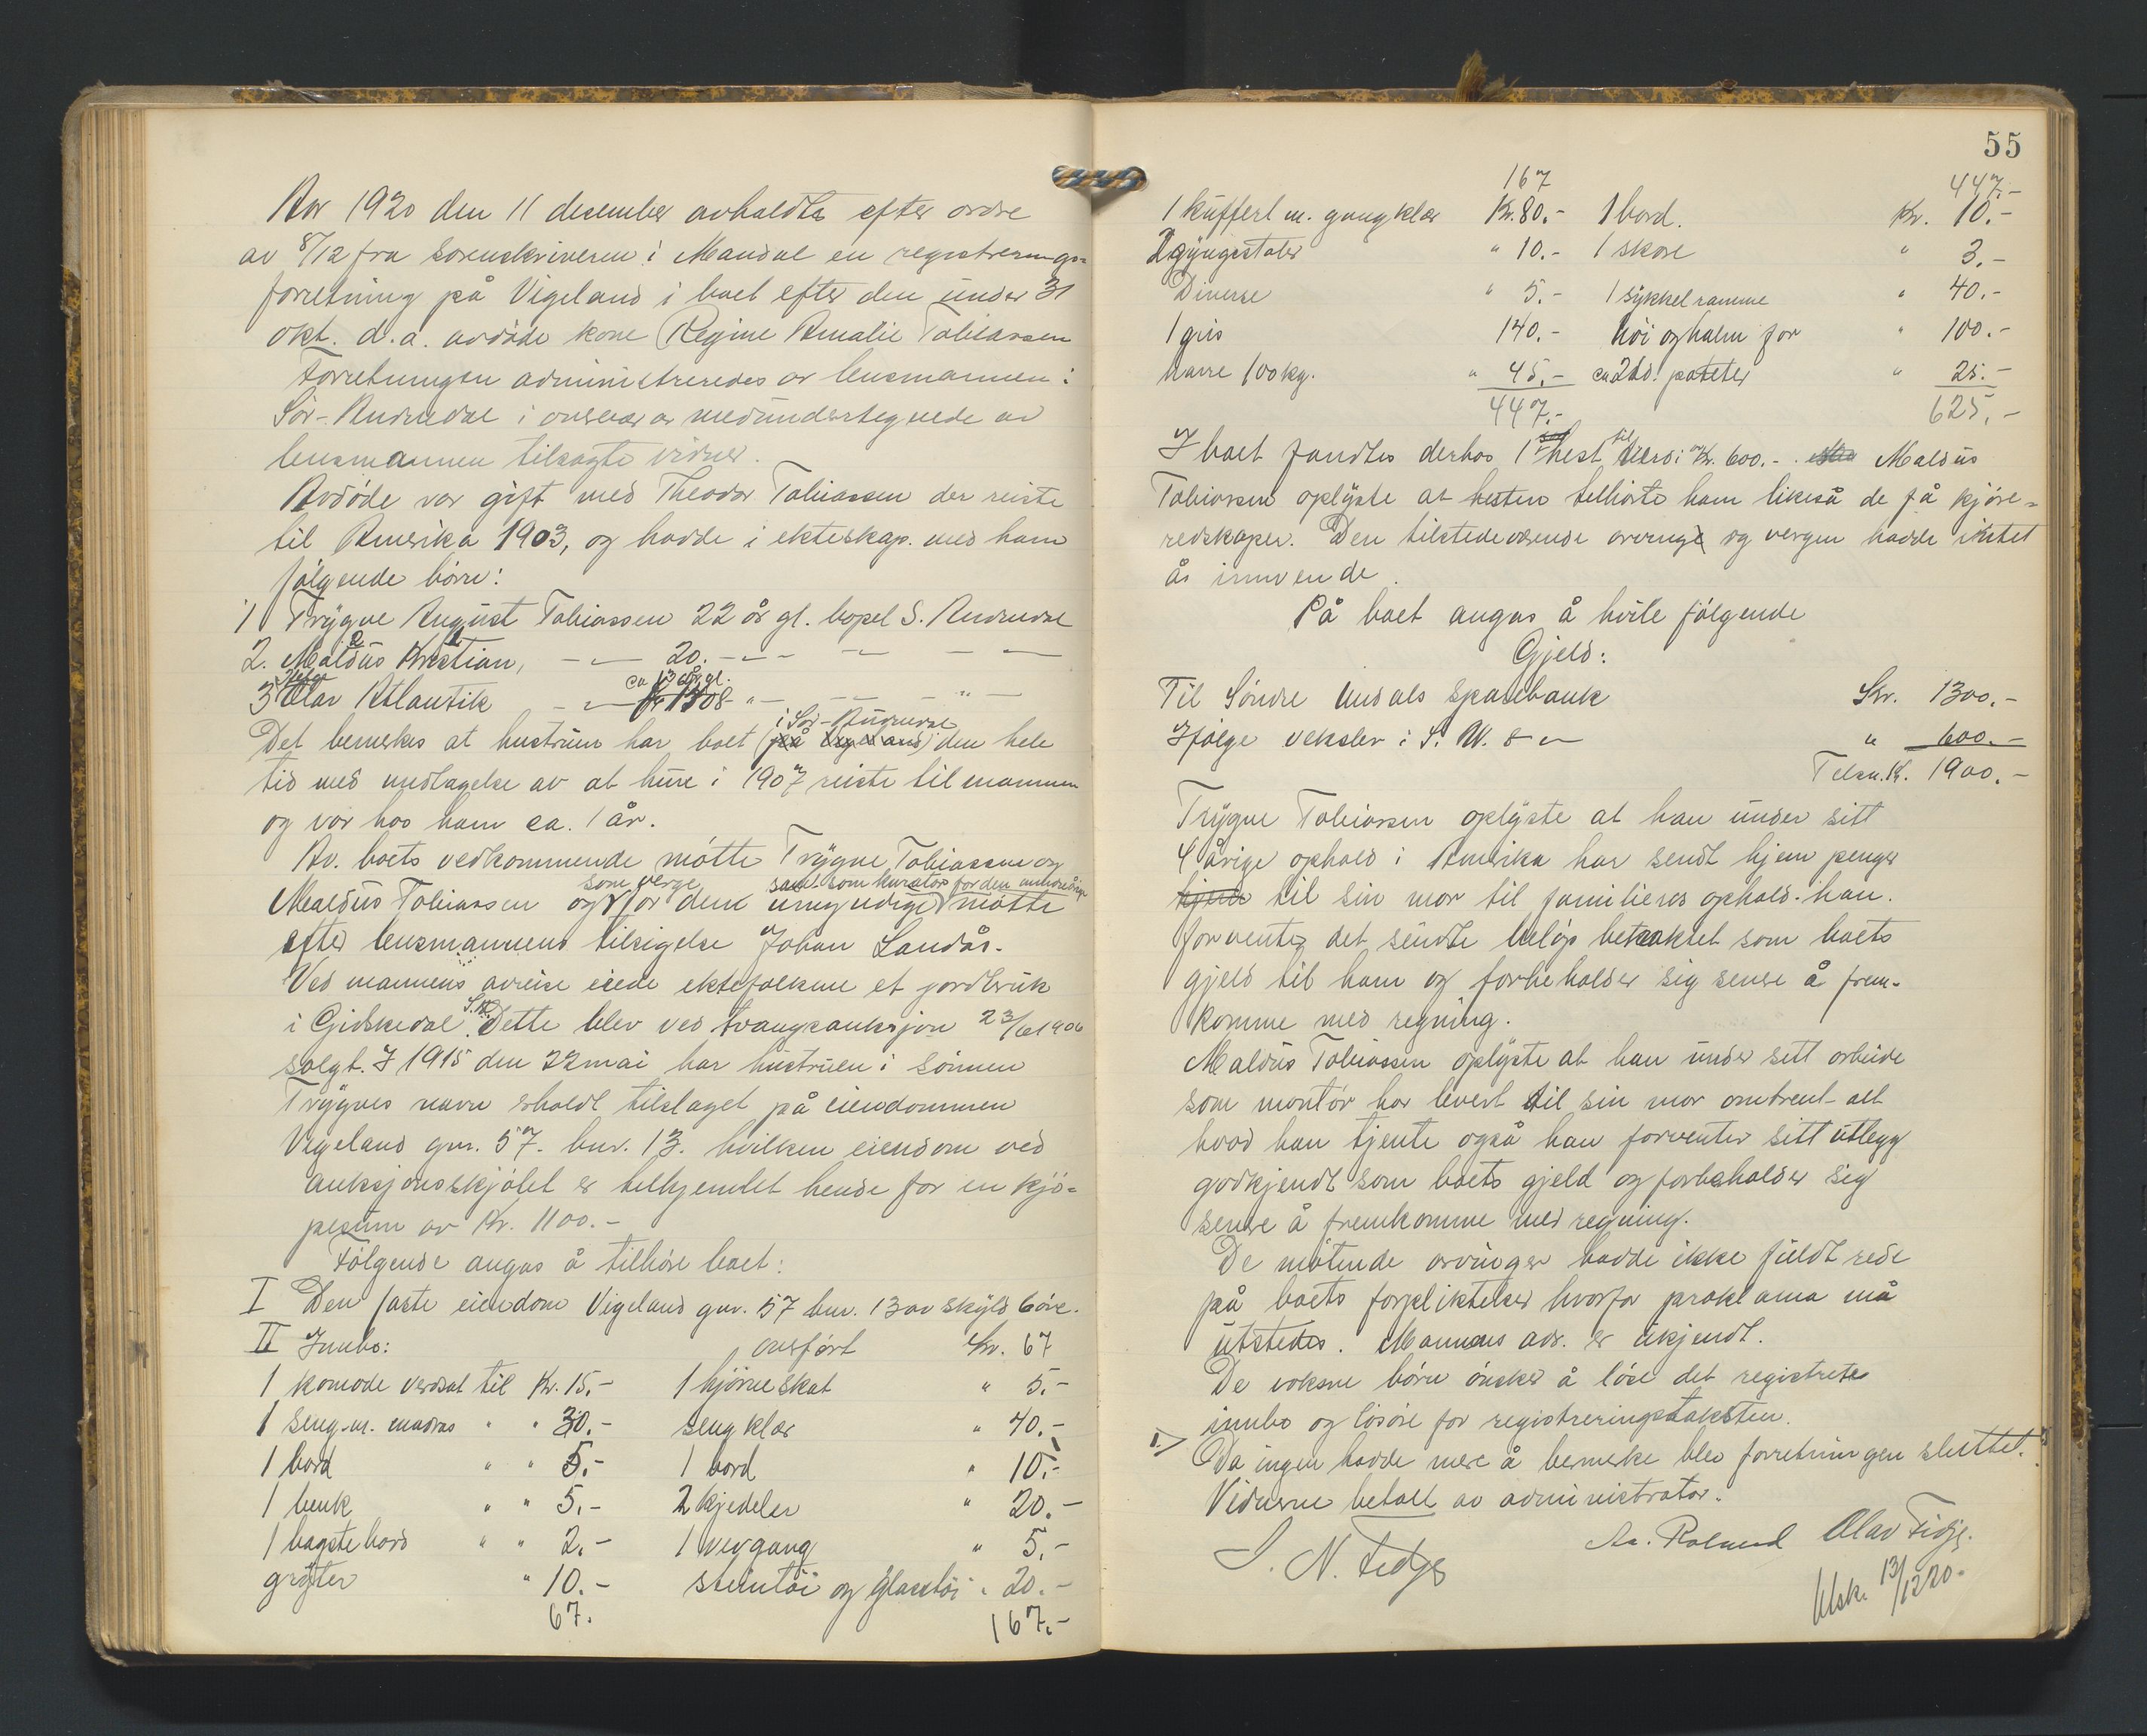 Aar 1920 den 11 december avholdtes efter ordre
av 8/12 fra sorenskriveren i Mandal en registrerings-
forretning på Vigeland i boet efter den under 31
okt. d.a. avdöde kone Regine Amalie Tobiassen
Forretningen administreredes av lensmannen i
Sör-Audnedal i overvær av medundertegnede av
lensmannen tilsagte vidner.
Avdöde var gift med Theodor Tobiassen der reiste
til Amerika 1903, og hadde i ekteskap med ham
følgende börn:
1 Trygve August Tobiassen 22 år gl. bopel S. Audnedal
2. Maldus Kristian, -"- 20. -"- -"- -"-
3 Olav Atlantik -"- ca 13 år gl. -"- -"-
Det bemerkes at hustruen har boet (på Vigeland) i Sör-Audnedal den hele
tid med undtagelse av at hun i 1907 reiste til mannen
og var hos ham ca. 1 år.
Av boets vedkommende mötte Trygve Tobiassen og
Maldus Tobiassen og som verge for den umyndige samt som kurator for den mindreårige mötte
efter lensmannens tilsigelse Johan Landås.
Ved mannens avreise eiede ektefolkene et jordbruk
i Gidskedal S.A. Dette blev ved tvangsauksjon 23/6 1906
solgt. I 1915 den 22 mai har hustruen i sönnen
Trygves navn erholdt tilslaget på eiendommen
Vigeland gnr. 57. bnr. 13. hvilken eiendom ved
auksjonsskjötet er tilhjemlet hende for en kjö-
pesum av Kr. 1100.-
Fölgende anga's å tilhöre boet:
I Den faste eiendom Vigeland gnr. 57 bnr. 13 av skyld 6 öre.
II Innbo: overfört Kr. 67
1 komode verdsat til Kr. 15.- 1 hjörneskat " 5.-
1 seng m. madras " " 30.- sengklær " 40.-
1 bord " " 5.- 1 bord " 10.-
1 benk " " 5.- 2 kjedeler " 20.-
1 bagstebord " " 2.- 1 vevgang " 5.-
gryter " 10.- stentöi og glasstöi " 20.-
67. 167.-
55
167 447.-
1 kuffert m. gangklær Kr. 80.- 1 bord. Kr. 10.-
2 gyngestoler " 10.- 1 skore " 3.-
Diverse " 5.- 1 sykkelramme " 40.-
1 gris 140.- höi og halm for " 100.-
havre 100 kg. " 45.- ca 2 td. poteter " 25.-
447.- 625.-
I boet fandtes derhos 1 hest til verdi av Kr. 600.-. Maldus
Tobiassen oplyste at hesten tilhörte ham likeså de få kjöre-
redskaper. Den tilstedeværende arving og vergen hadde intet
å innvende.
På boet angas å hvile følgende
Gjeld:
Til Söndre Undals Sparebank Kr. 1300.-
Ifölge veksler i S. U. S -"- " 600.-
Tilsm. Kr. 1900.-
Trygve Tobiassen oplyste at han under sitt
4 årige ophold i Amerika har sendt hjem penger
hjem til sin mor til familiens ophold. han
forventer det sendte belöp betraktet som boets
gjeld til ham og forbeholder sig senere å frem-
komme med regning.
Maldus Tobiassen oplyste at han under sitt arbeide
som montör har levert til sin mor omtrent alt
hvad han tjente også han forventer sitt utlegg
godkjendt som boets gjeld og forbeholder sig
senere å fremkomme med regning.
De mötende arvinger hadde ikke fuldt rede
på boets forpliktelser hvorfor proklama må
utstedes. Mannens adr. er ukjendt.
De voksne börn önsker å löse det registrerte
innbo og lösöre for registreringstaksten.
Da ingen hadde mere å bemerke blev forretningen sluttet.
Vidnerne betalt av administrator.
S. N. Fidje Aa. Roland Olav Fidje.
Utsk. 13/12 20.